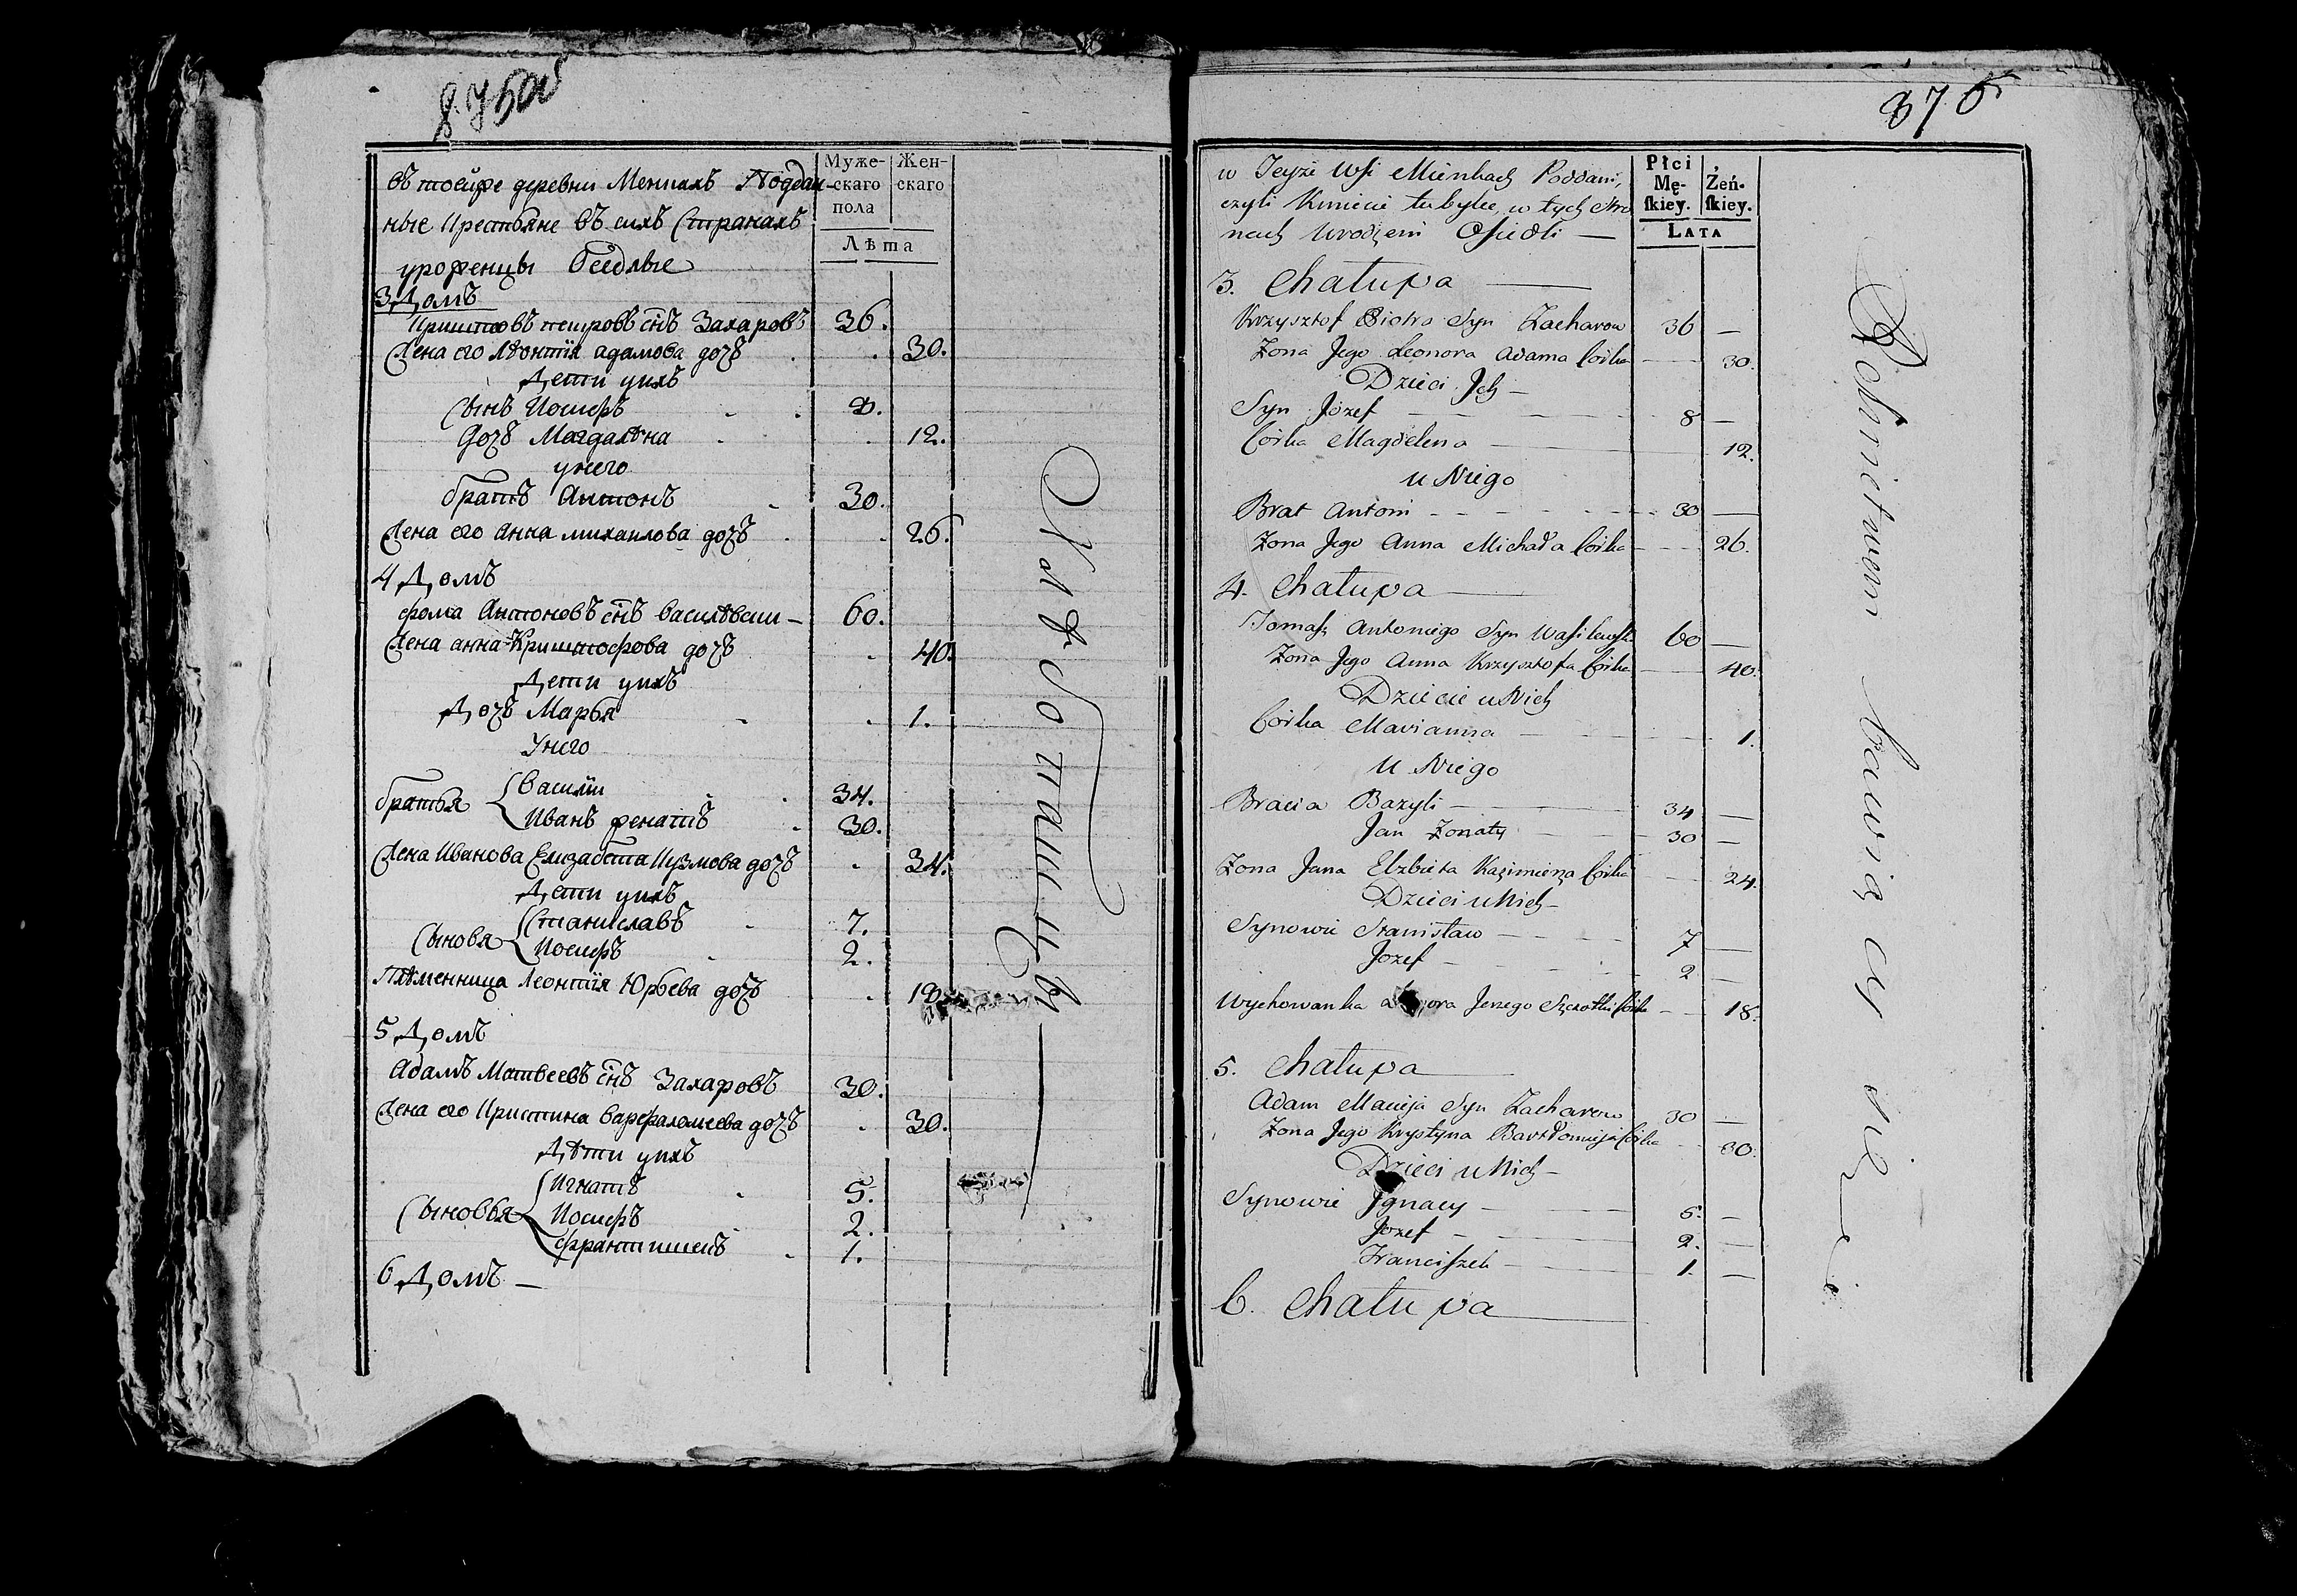 875об
Муже-
скаго
пола
Жен-
скаго
Лѣта
въ тойже деревни Менкахъ Поддан-
ные Крестьяне въ сихъ Странахъ
уроженцы Оседлые
3 Домъ
Криштовъ петровъ снъ Захаровъ 36.
Жена его Леонтія адамова дочь 30.
Дети ихъ
Сынъ Иосифъ 8.
Дочь Магдалѣна 12.
у него
братъ Антонъ 30.
Жена его Анна михаилова дочь 26.
4 Домъ
фома Антоновъ снъ Василѣвски 60.
Жена анна Криштофова дочь 40.
Дети у ихъ
Дочь Марья 1.
У него
братья Василіи 34.
Иванъ женатъ 30.
Жена Иванова Елизабета Кузмова дочь 34.
Дети у ихъ
Сыновя Станиславъ 7.
Иосифъ 2.
Плѣменница Леонтія Юрьева дочь 18.
5 Домъ
Адамъ Матвеевъ снъ Захаровъ 30.
Жена его Кристина Варфаломеева дочь 30.
Дѣти у ихъ
Сыновья Игнатъ 5.
Иосифъ 2.
франтишекъ 1.
6 Домъ —
Хлѣбопашцы
875
Płci
Mę-
ſkiey.
Żeń-
ſkiey.
LATA
w Teyże Wsi Mienkach Poddani,
czyli Kmiecie tubylce, w tych stro
nach Urodzeni Osiedli —
3. Chałupa
Krzysztof Piotra Syn Zacharow 36 —
Zona Jego Leonora Adama Corka 30.
Dzieci Jch —
Syn Józef 8 —
Corka Magdelena 12.
u Niego
Brat Antoni 30 —
Zona Jego Anna Michała Corka 26.
4. Chałupa
Tomasz Antoniego Syn Wasilewski 60 —
Zona Jego Anna Krzysztofa Corka 40.
Dziecie u Nich
Corka Marianna 1.
U Niego
Bracia Bazyli 34 —
Jan Zonaty 30 —
Zona Jana Elzbieta Kazimierza Corka 24.
Dzieci u Nich —
Synowie Stanisław 7 —
Jozef 2 —
Wychowanka Jerzego Corka 18.
5. Chałupa
Adam Macieja Syn Zacharow 30 —
Zona Jego Krystyna Bartłomieja Corka 30.
Dzieci u Nich —
Synowie Jgnacy 5. —
Jozef 2. —
Franciszek 1. —
6. Chałupa
Rolnictwem bawią się